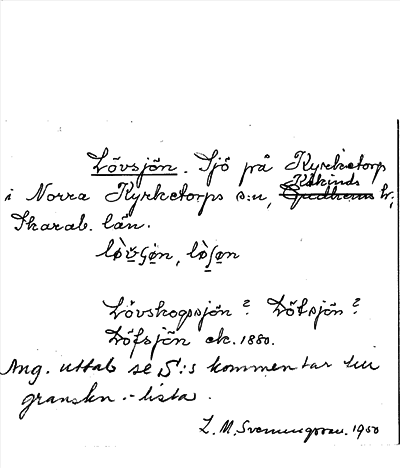 Lövsjön. Sjö på Kyrketorp
Kåkinds
i Norra Kyrketorps s:n, Gudhems hr,
Skarab. län.
lòvʃøn, lòʃøn
Lövskogssjön? Döfsjön?
Döfsjön ek. 1880.
Ang. uttal se S:s kommentar till
granskn.-lista.
L. M. Svenungsson. 1950